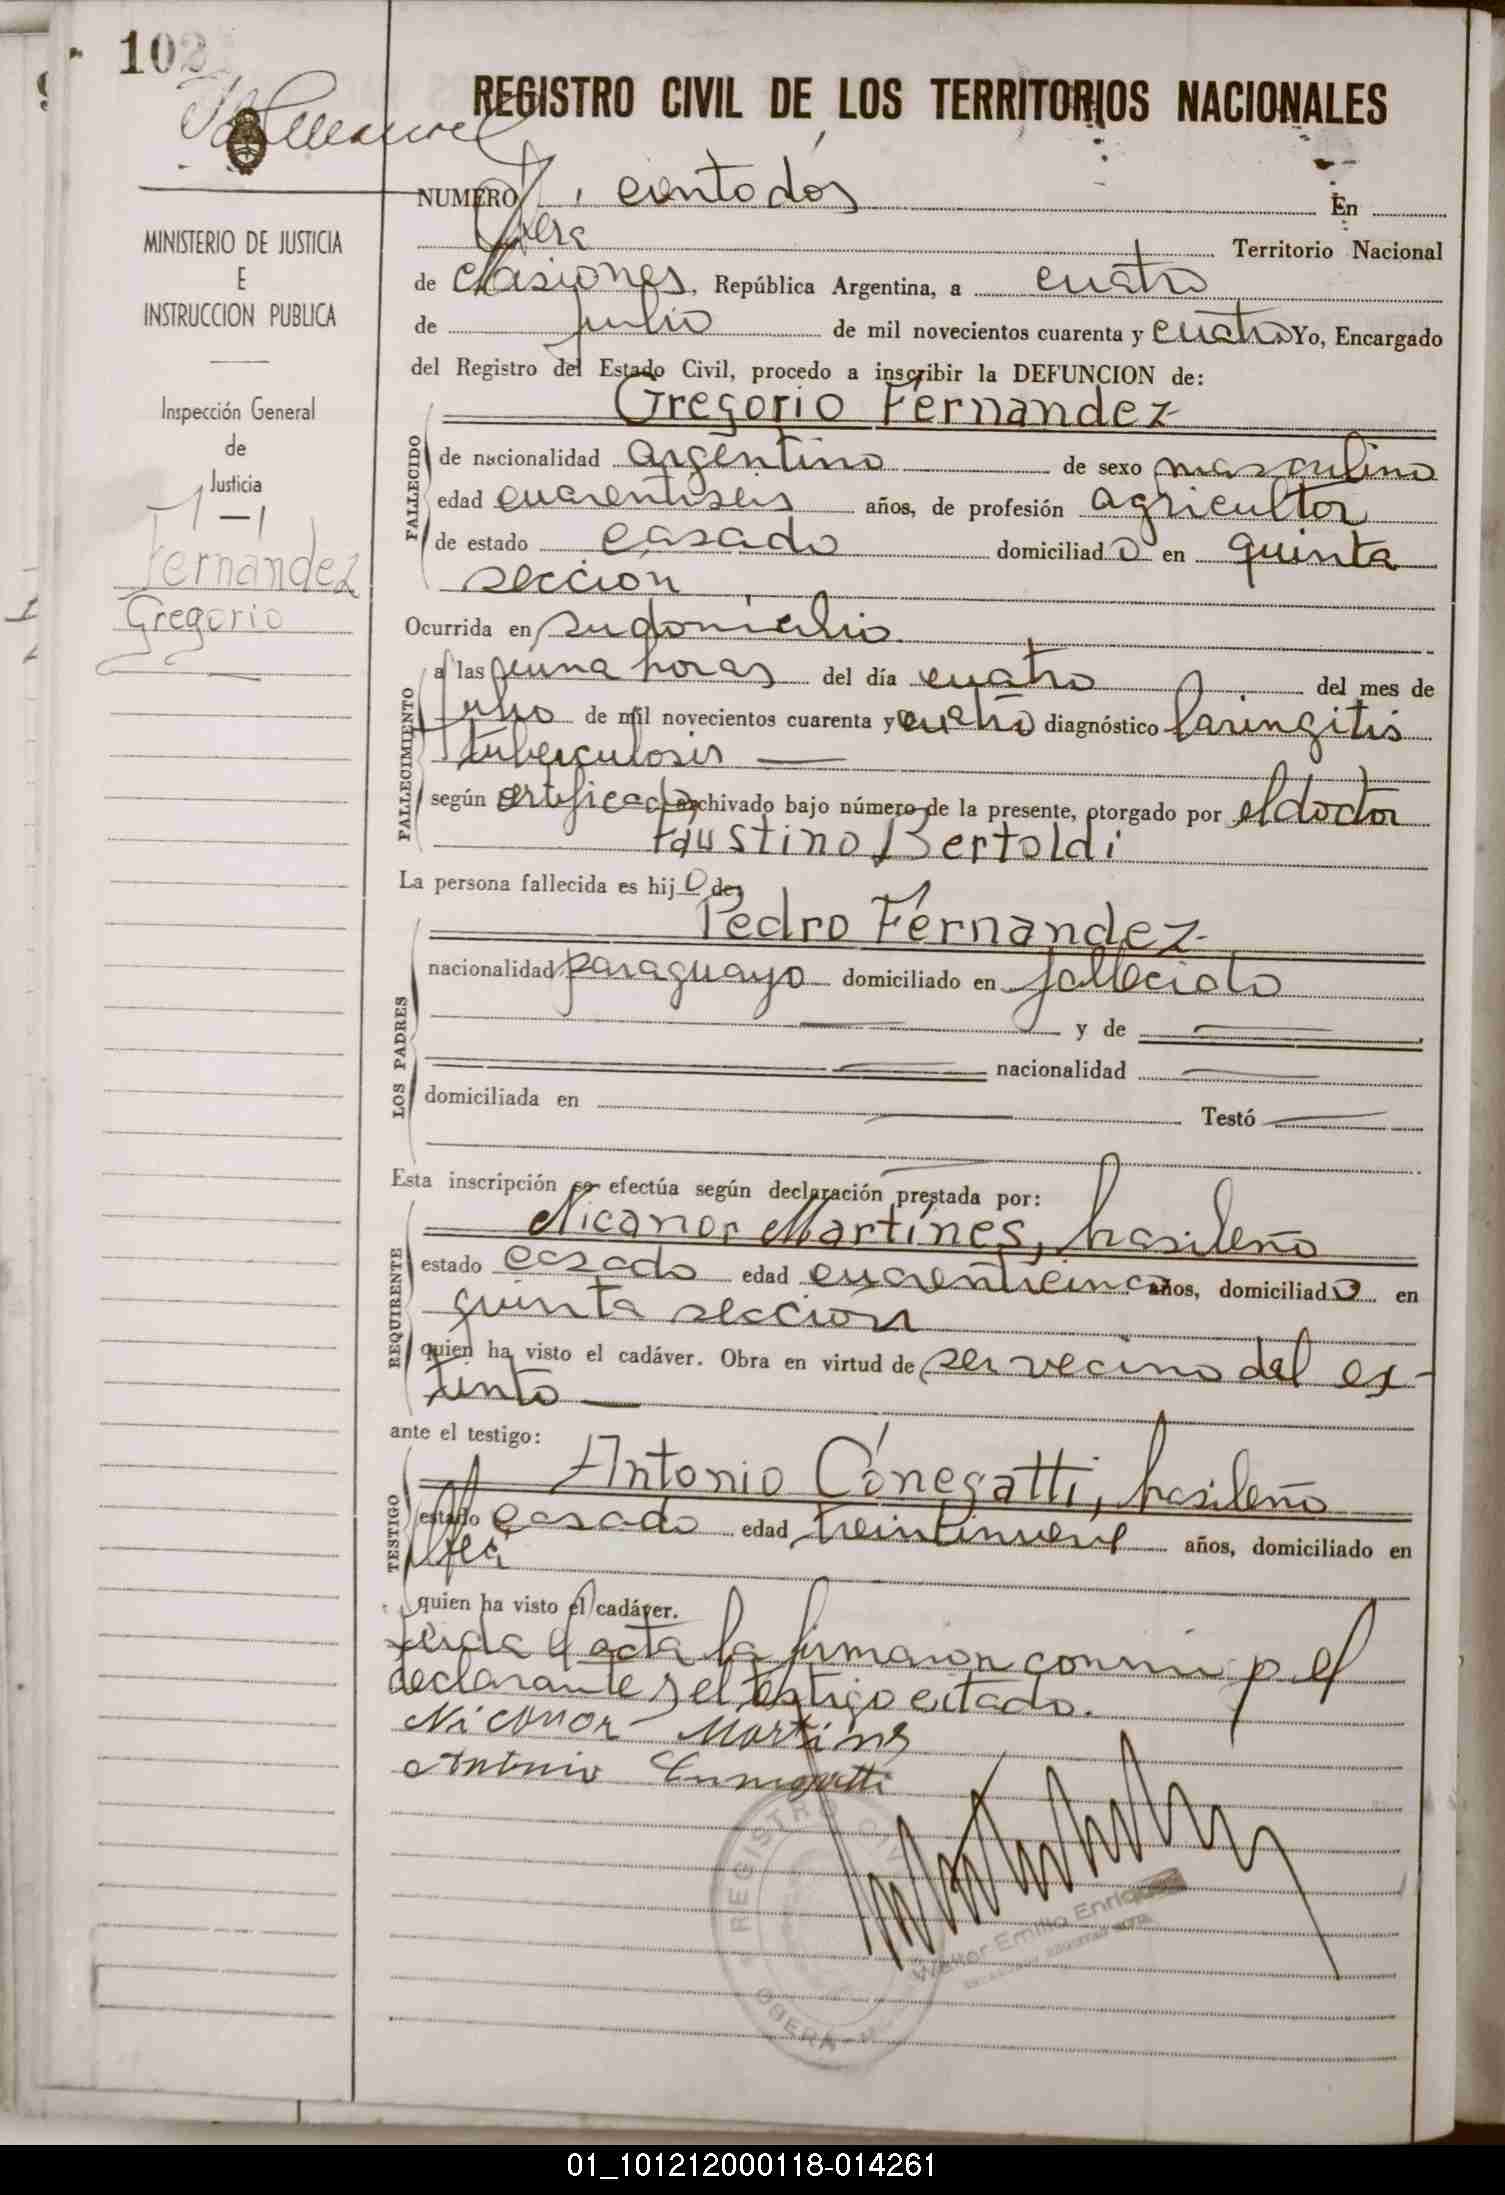 102
REGISTRO CIVIL DE LOS TERRITORIOS NACIONALES
NUMERO cientodos En
Territorio Nacional
MINISTERIO DE JUSTICIA
E
INSTRUCCION PUBLICA
Inspección General
de
Justicia
Fernández
Gregorio
de Misiones, República Argentina, a cuatro
de Julio de mil novecientos cuarenta y cuatro Yo, Encargado
del Registro del Estado Civil, procedo a inscribir la DEFUNCION de:
Gregorio Fernandez
FALLECIDO
de nacionalidad argentino de sexo masculino
edad cuarentiseis años, de profesión agricultor
de estado casado domiciliado en quinta
sección
Ocurrida en su domicilio
FALLECIMIENTO
a las una horas del día cuatro del mes de
Julio de mil novecientos cuarenta y cuatro diagnóstico laringitis
tuberculosis
según certificado archivado bajo número de la presente, otorgado por el doctor
Faustino Bertoldi
La persona fallecida es hijo de
LOS PADRES
Pedro Fernandez
nacionalidad paraguayo domiciliado en fallecido
y de
nacionalidad
domiciliada en Testó
Esta inscripción se efectúa según declaración prestada por:
REQUIRENTE
Nicanor Martines, brasileño
estado casado edad cuarenticinco años, domiciliado en
quinta sección
quien ha visto el cadáver. Obra en virtud de ser vecino del ex-
tinto
ante el testigo:
TESTIGO
Antonio Conegatti, brasileño
estado casado edad treintinueve años, domiciliado en
quien ha visto el cadáver.
Leida el acta la firmaron conmigo el
declarante y el testigo citado.
Nicanor Martins
Antonio
REGISTRO CIVIL
OBERA
Walter Emilio Enriquez
01_101212000118-014261